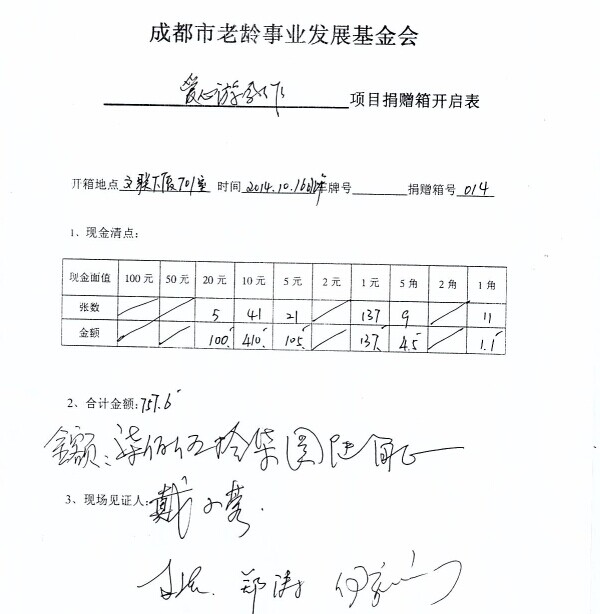 成都市老龄事业发展基金会
爱心 项目捐赠箱开启表
开箱地点 文联大厦701室 时间 2014.10.16 车牌号 捐赠箱号 014
1、现金清点:
现金面值 100元 50元 20元 10元 5元 2元 1元 5角 2角 1角
张数 5 41 21 137 9 11
金额 100. 410. 105. 137. 4.5 1.1
2、合计金额: 757.6
金额:柒佰伍拾柒圆陆角正
3、现场见证人: 戴
郑涛